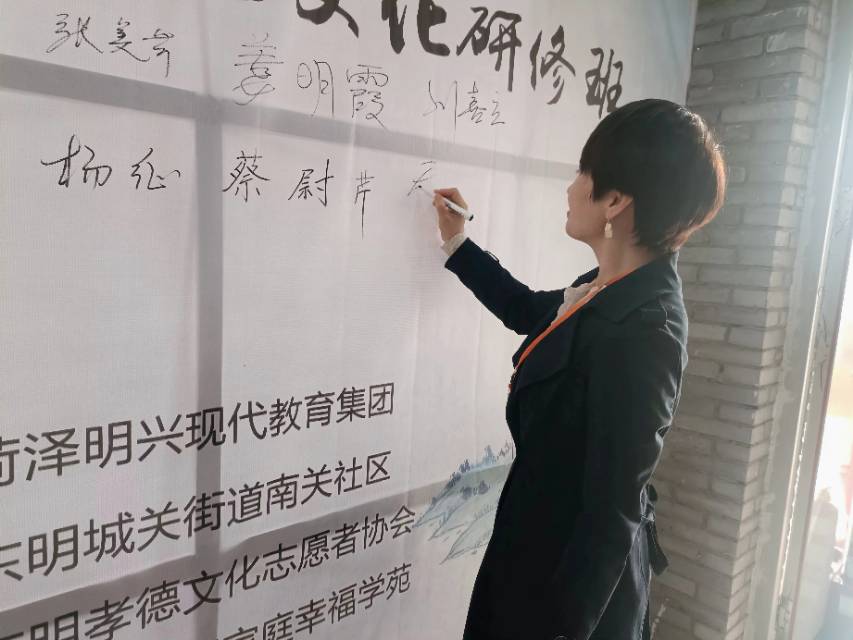 文化研修班
张美岑 姜明霞 刘喜立
杨征 蔡尉芹
荷泽明兴现代教育集团
东明城关街道南关社区
东明孝德文化志愿者协会
家庭幸福学苑